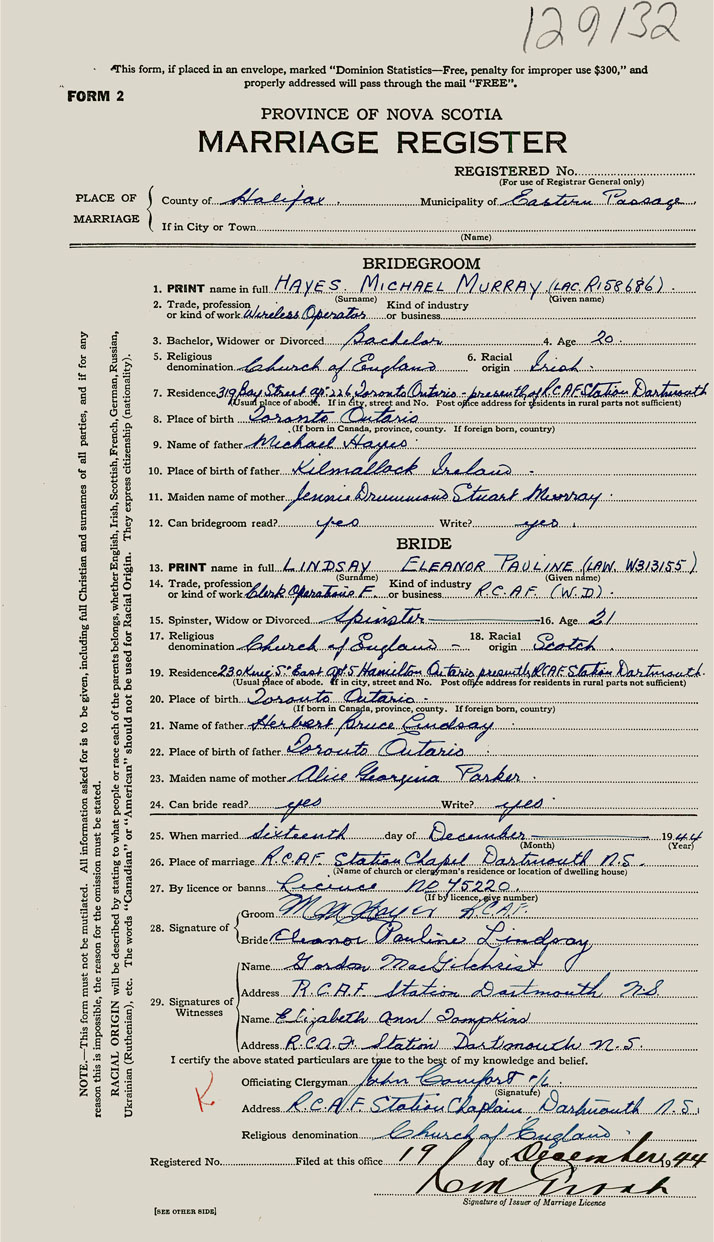 129132
This form, if placed in an envelope, marked "Dominion Statistics—Free, penalty for improper use $300," and
properly addressed will pass through the mail "FREE".
FORM 2
PROVINCE OF NOVA SCOTIA
MARRIAGE REGISTER
REGISTERED No.
(For use of Registrar General only)
PLACE OF MARRIAGE
County of Halifax. Municipality of Eastern Passage.
If in City or Town
(Name)
BRIDEGROOM
1. PRINT name in full HAYES. MICHAEL MURRAY (LAC. R158686).
(Surname) (Given name)
2. Trade, profession or kind of work Wireless Operator Kind of industry or business
3. Bachelor, Widower or Divorced Bachelor 4. Age 20.
5. Religious denomination Church of England 6. Racial origin Irish.
7. Residence 319 Bay Street apt 226, Toronto Ontario - presently R.C.A.F Station Dartmouth
(Usual place of abode. If in city, street and No. Post office address for residents in rural parts not sufficient)
8. Place of birth Toronto Ontario
(If born in Canada, province, county. If foreign born, country)
9. Name of father Michael Hayes
10. Place of birth of father Kilmallock Ireland -
11. Maiden name of mother Jennie Drummond Stuart Murray.
12. Can bridegroom read? yes Write? yes.
BRIDE
13. PRINT name in full LINDSAY ELEANOR PAULINE (LAW. W313155)
(Surname) (Given name)
14. Trade, profession or kind of work Clerk Operations F. Kind of industry or business R.C.A.F. (W.D).
15. Spinster, Widow or Divorced Spinster 16. Age 21
17. Religious denomination Church of England - 18. Racial origin Scotch.
19. Residence 230 King St East apt 5 Hamilton Ontario presently R.C.A.F Station Dartmouth.
(Usual place of abode. If in city, street and No. Post office address for residents in rural parts not sufficient)
20. Place of birth Toronto Ontario -
(If born in Canada, province, county. If foreign born, country)
21. Name of father Herbert Bruce Lindsay
22. Place of birth of father Toronto Ontario
23. Maiden name of mother Alice Georgina Parker.
24. Can bride read? yes Write? yes.
25. When married Sixteenth day of December 1944
(Month) (Year)
26. Place of marriage R.C.A.F. Station Chapel Dartmouth N.S.
(Name of church or clergyman's residence or location of dwelling house)
27. By licence or banns Licence No 45220.
(If by licence, give number)
28. Signature of
Groom M M Hayes R.C.A.F.
Bride Eleanor Pauline Lindsay
29. Signatures of Witnesses
Name Gordon MacGilchrist
Address R.C.A.F. Station Dartmouth N.S.
Name Elizabeth Ann Tompkins
Address R.C.A.F. Station Dartmouth N.S.
I certify the above stated particulars are true to the best of my knowledge and belief.
Officiating Clergyman John Comfort
(Signature)
Address R.C.A.F. Station Chaplain, Dartmouth N.S.
Religious denomination Church of England
Registered No. Filed at this office 19 day of December, 1944
Signature of Issuer of Marriage Licence
[SEE OTHER SIDE]
NOTE.—This form must not be mutilated. All information asked for is to be given, including full Christian and surnames of all parties, and if for any
reason this is impossible, the reason for the omission must be stated.
RACIAL ORIGIN will be described by stating to what people or race each of the parents belongs, whether English, Irish, Scottish, French, German, Russian,
Ukrainian (Ruthenian), etc. The words "Canadian" or "American" should not be used for Racial Origin. They express citizenship (nationality).